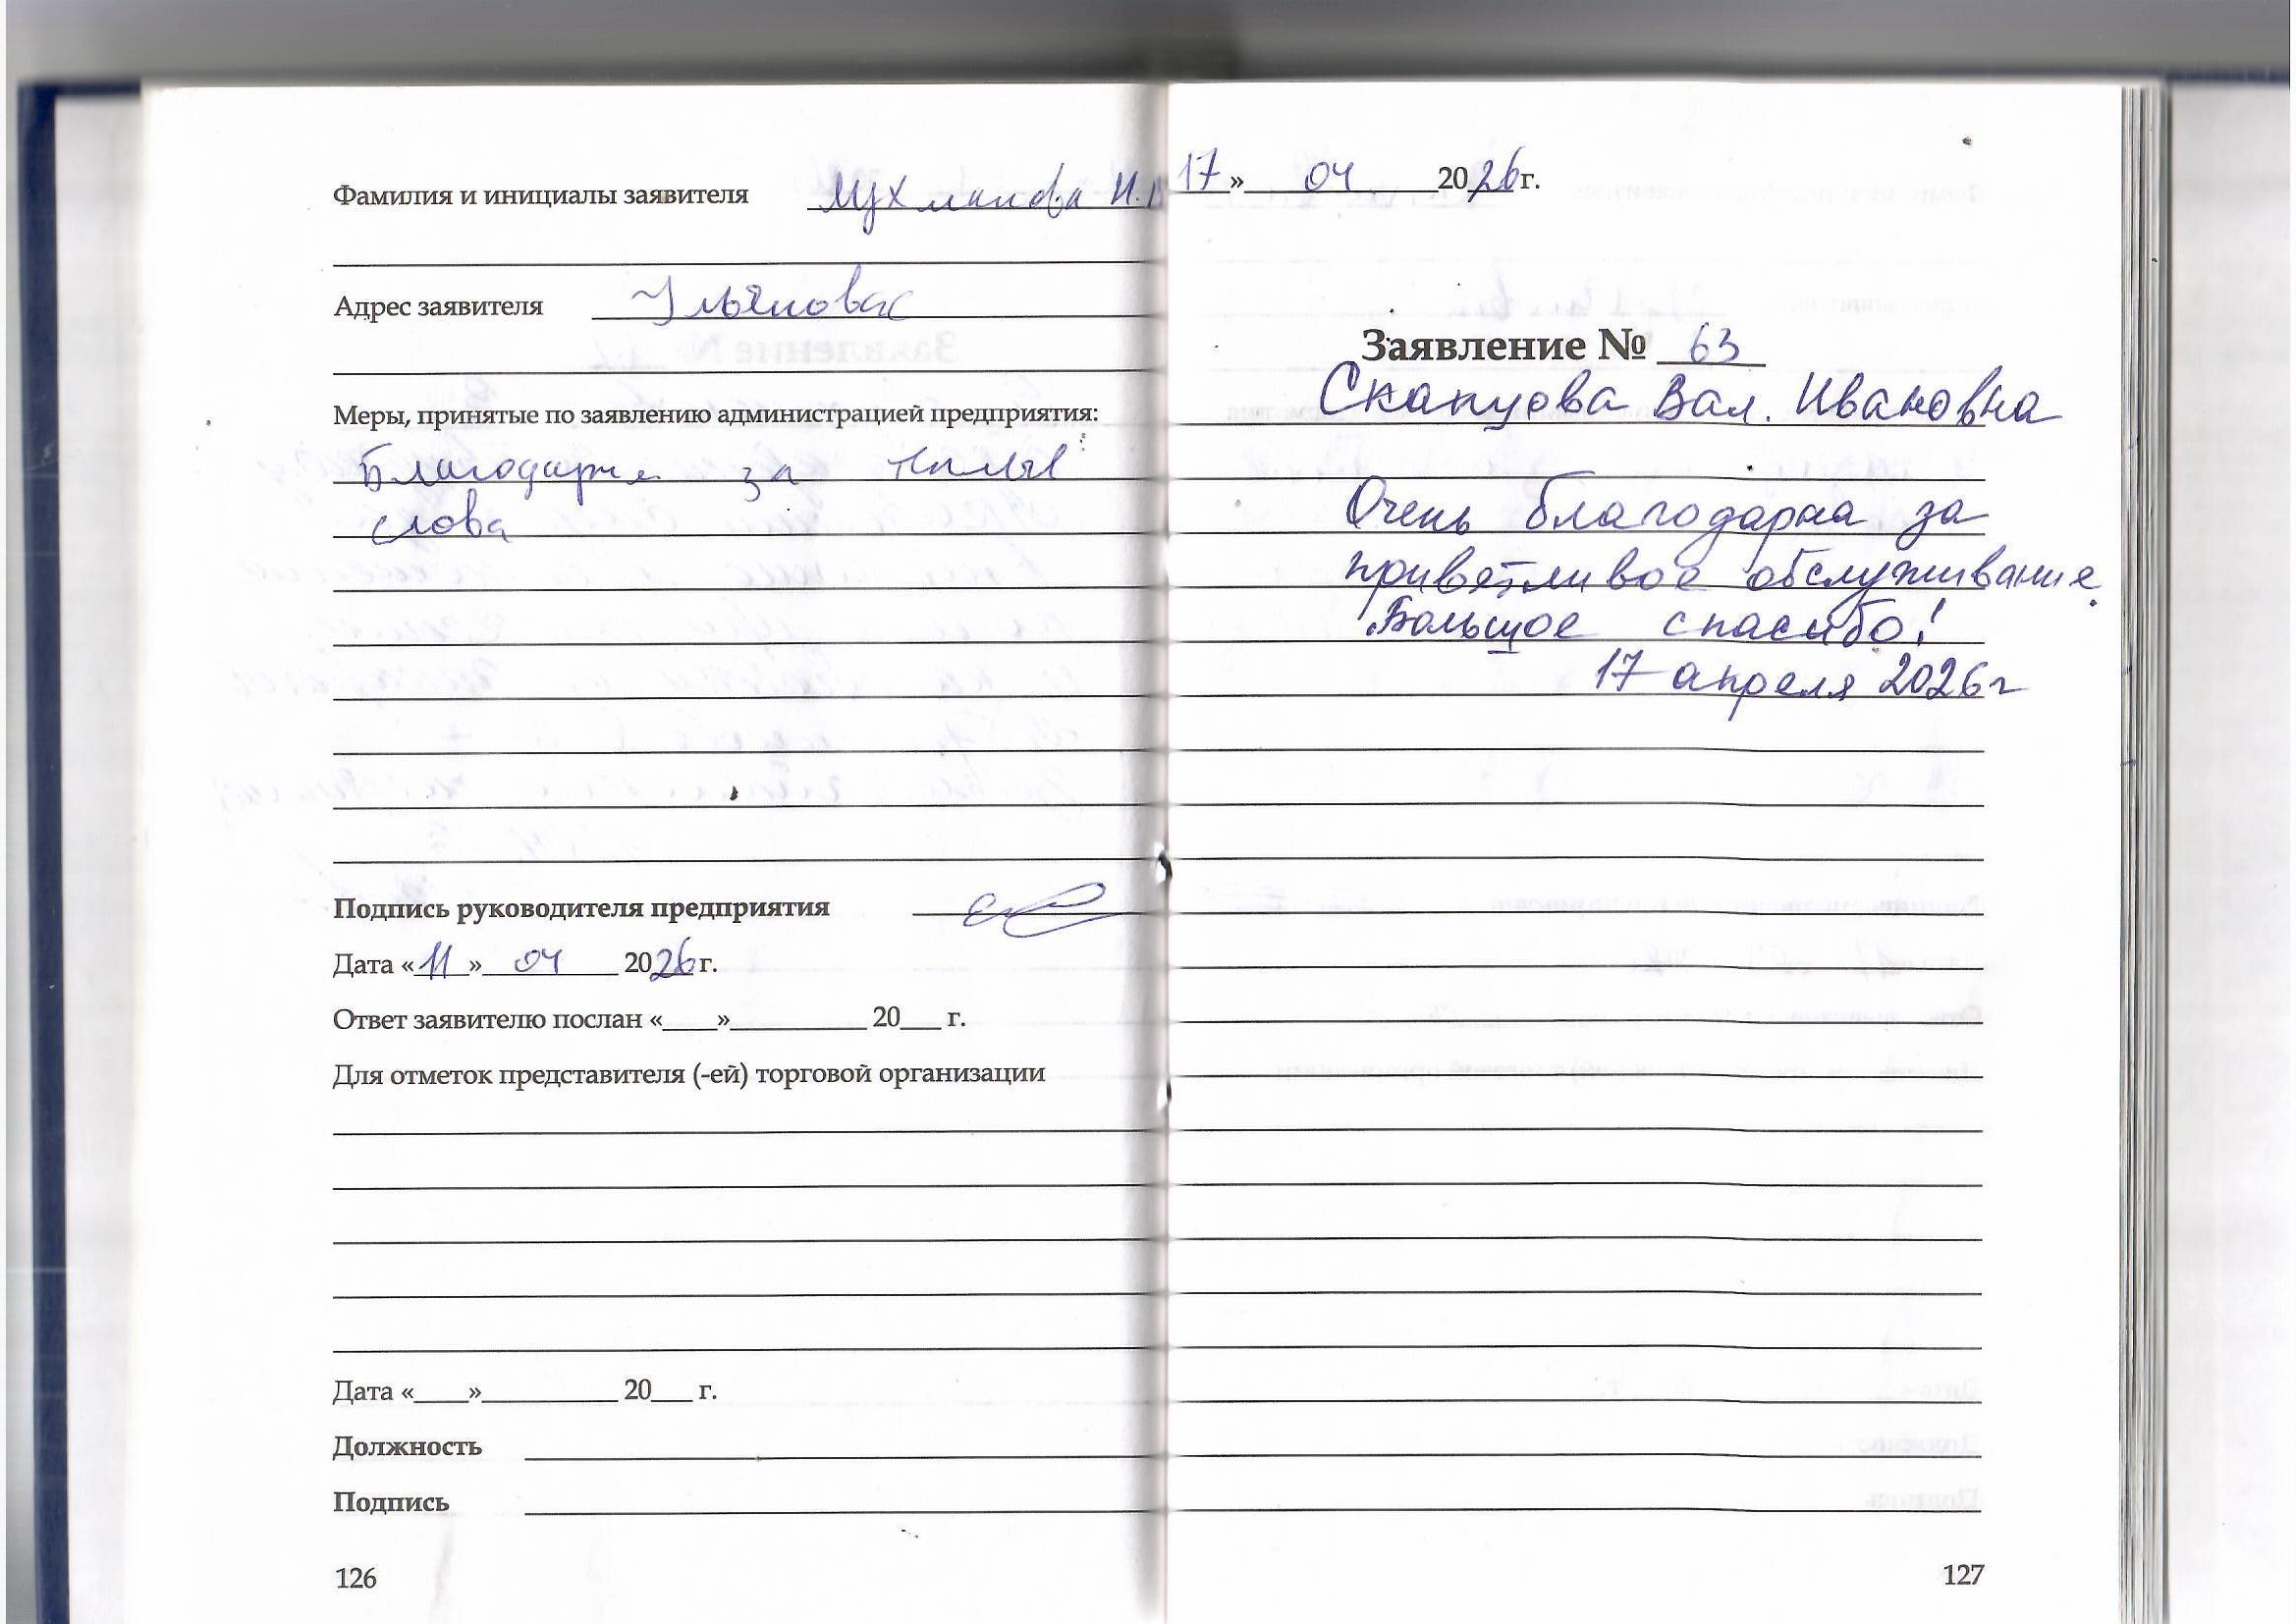 Фамилия и инициалы заявителя Мухлинова И.В
Адрес заявителя Ульяновск
Меры, принятые по заявлению администрацией предприятия:
Благодарим за теплые
слова
Подпись руководителя предприятия
Дата «11» 04 2026 г.
Ответ заявителю послан «____»__________ 20___ г.
Для отметок представителя (-ей) торговой организации
Дата «____»__________ 20___ г.
Должность
Подпись
126
17» 04 2026 г.
Заявление № 63
Вал. Ивановна
Очень благодарна за
приветливое обслуживание.
Большое спасибо!
17 апреля 2026 г
127